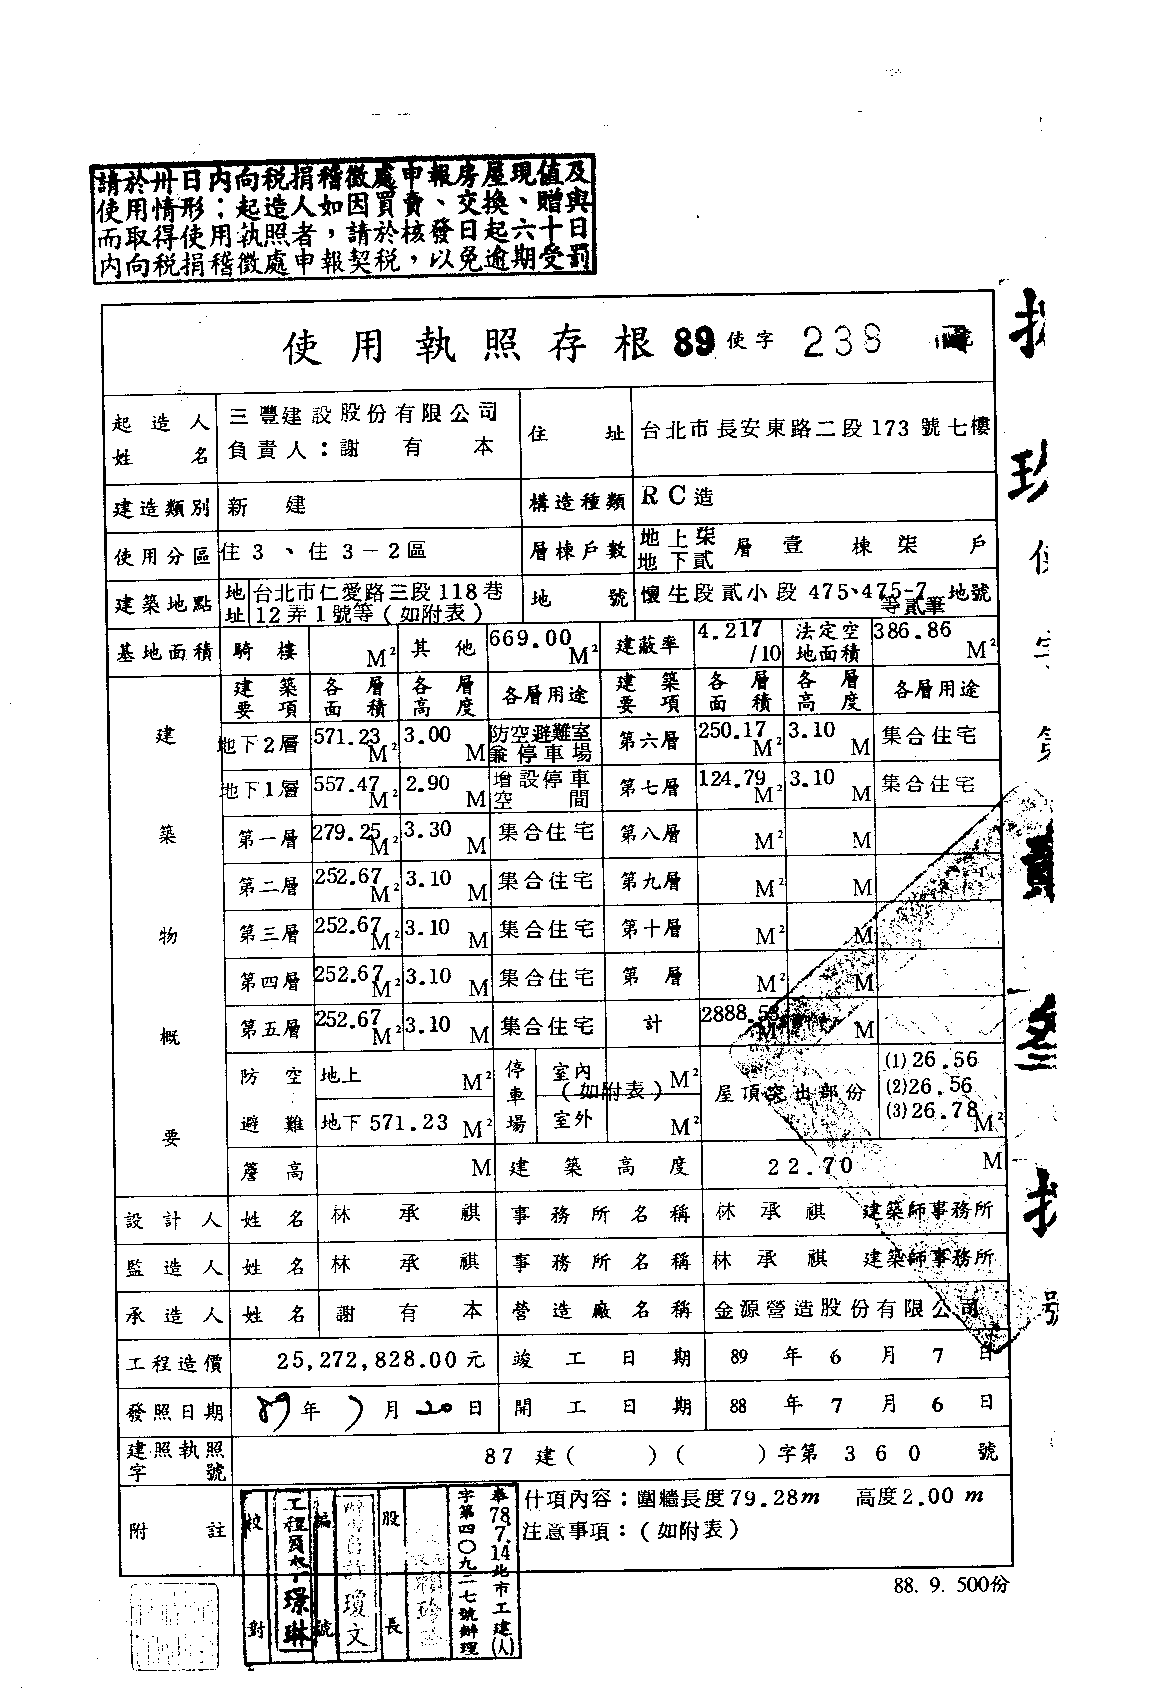 請於卅日內向稅捐稽徵處申報房屋現值及
使用情形；起造人如因買賣、交換、贈與
而取得使用執照者，請於核發日起六十日
內向稅捐稽徵處申報契稅，以免逾期受罰
使用執照存根 89 使字 238 號
起造人姓名 三豐建設股份有限公司 負責人：謝有本 住址 台北市長安東路二段173號七樓
建造類別 新建 構造種類 RC造
使用分區 住3、住3－2區 層棟戶數 地上柒 地下貳 層壹棟柒戶
建築地點 地址 台北市仁愛路三段118巷12弄1號等(如附表) 地號 懷生段貳小段475、475-7地號等貳筆
基地面積 騎樓 M² 其他 669.00 M² 建蔽率 4.217/10 法定空地面積 386.86 M²
建築物概要
建築要項 各層面積 各層高度 各層用途 建築要項 各層面積 各層高度 各層用途
地下2層 571.23 M² 3.00 M 防空避難室兼停車場 第六層 250.17 M² 3.10 M 集合住宅
地下1層 557.47 M² 2.90 M 增設停車空間 第七層 124.79 M² 3.10 M 集合住宅
第一層 279.25 M² 3.30 M 集合住宅 第八層 M² M
第二層 252.67 M² 3.10 M 集合住宅 第九層 M² M
第三層 252.67 M² 3.10 M 集合住宅 第十層 M² M
第四層 252.67 M² 3.10 M 集合住宅 第 層 M² M
第五層 252.67 M² 3.10 M 集合住宅 計 2888.53 M² M
防空避難 地上 M² 停車場 室內 (如附表) M² 屋頂突出部份 (1)26.56
(2)26.56
地下 571.23 M² 室外 M² (3)26.78 M²
簷高 M 建築高度 22.70 M
設計人 姓名 林承祺 事務所名稱 林承祺 建築師事務所
監造人 姓名 林承祺 事務所名稱 林承祺 建築師事務所
承造人 姓名 謝有本 營造廠名稱 金源營造股份有限公司
工程造價 25,272,828.00元 竣工日期 89年6月7日
發照日期 89年7月20日 開工日期 88年7月6日
建照執照字號 87 建( )( )字第 360 號
附註 什項內容：圍牆長度79.28m 高度2.00m
注意事項：(如附表)
校對
編號
股長
奉78.7.14北市工建(人)
字第四〇九二七號辦理
88. 9. 500份